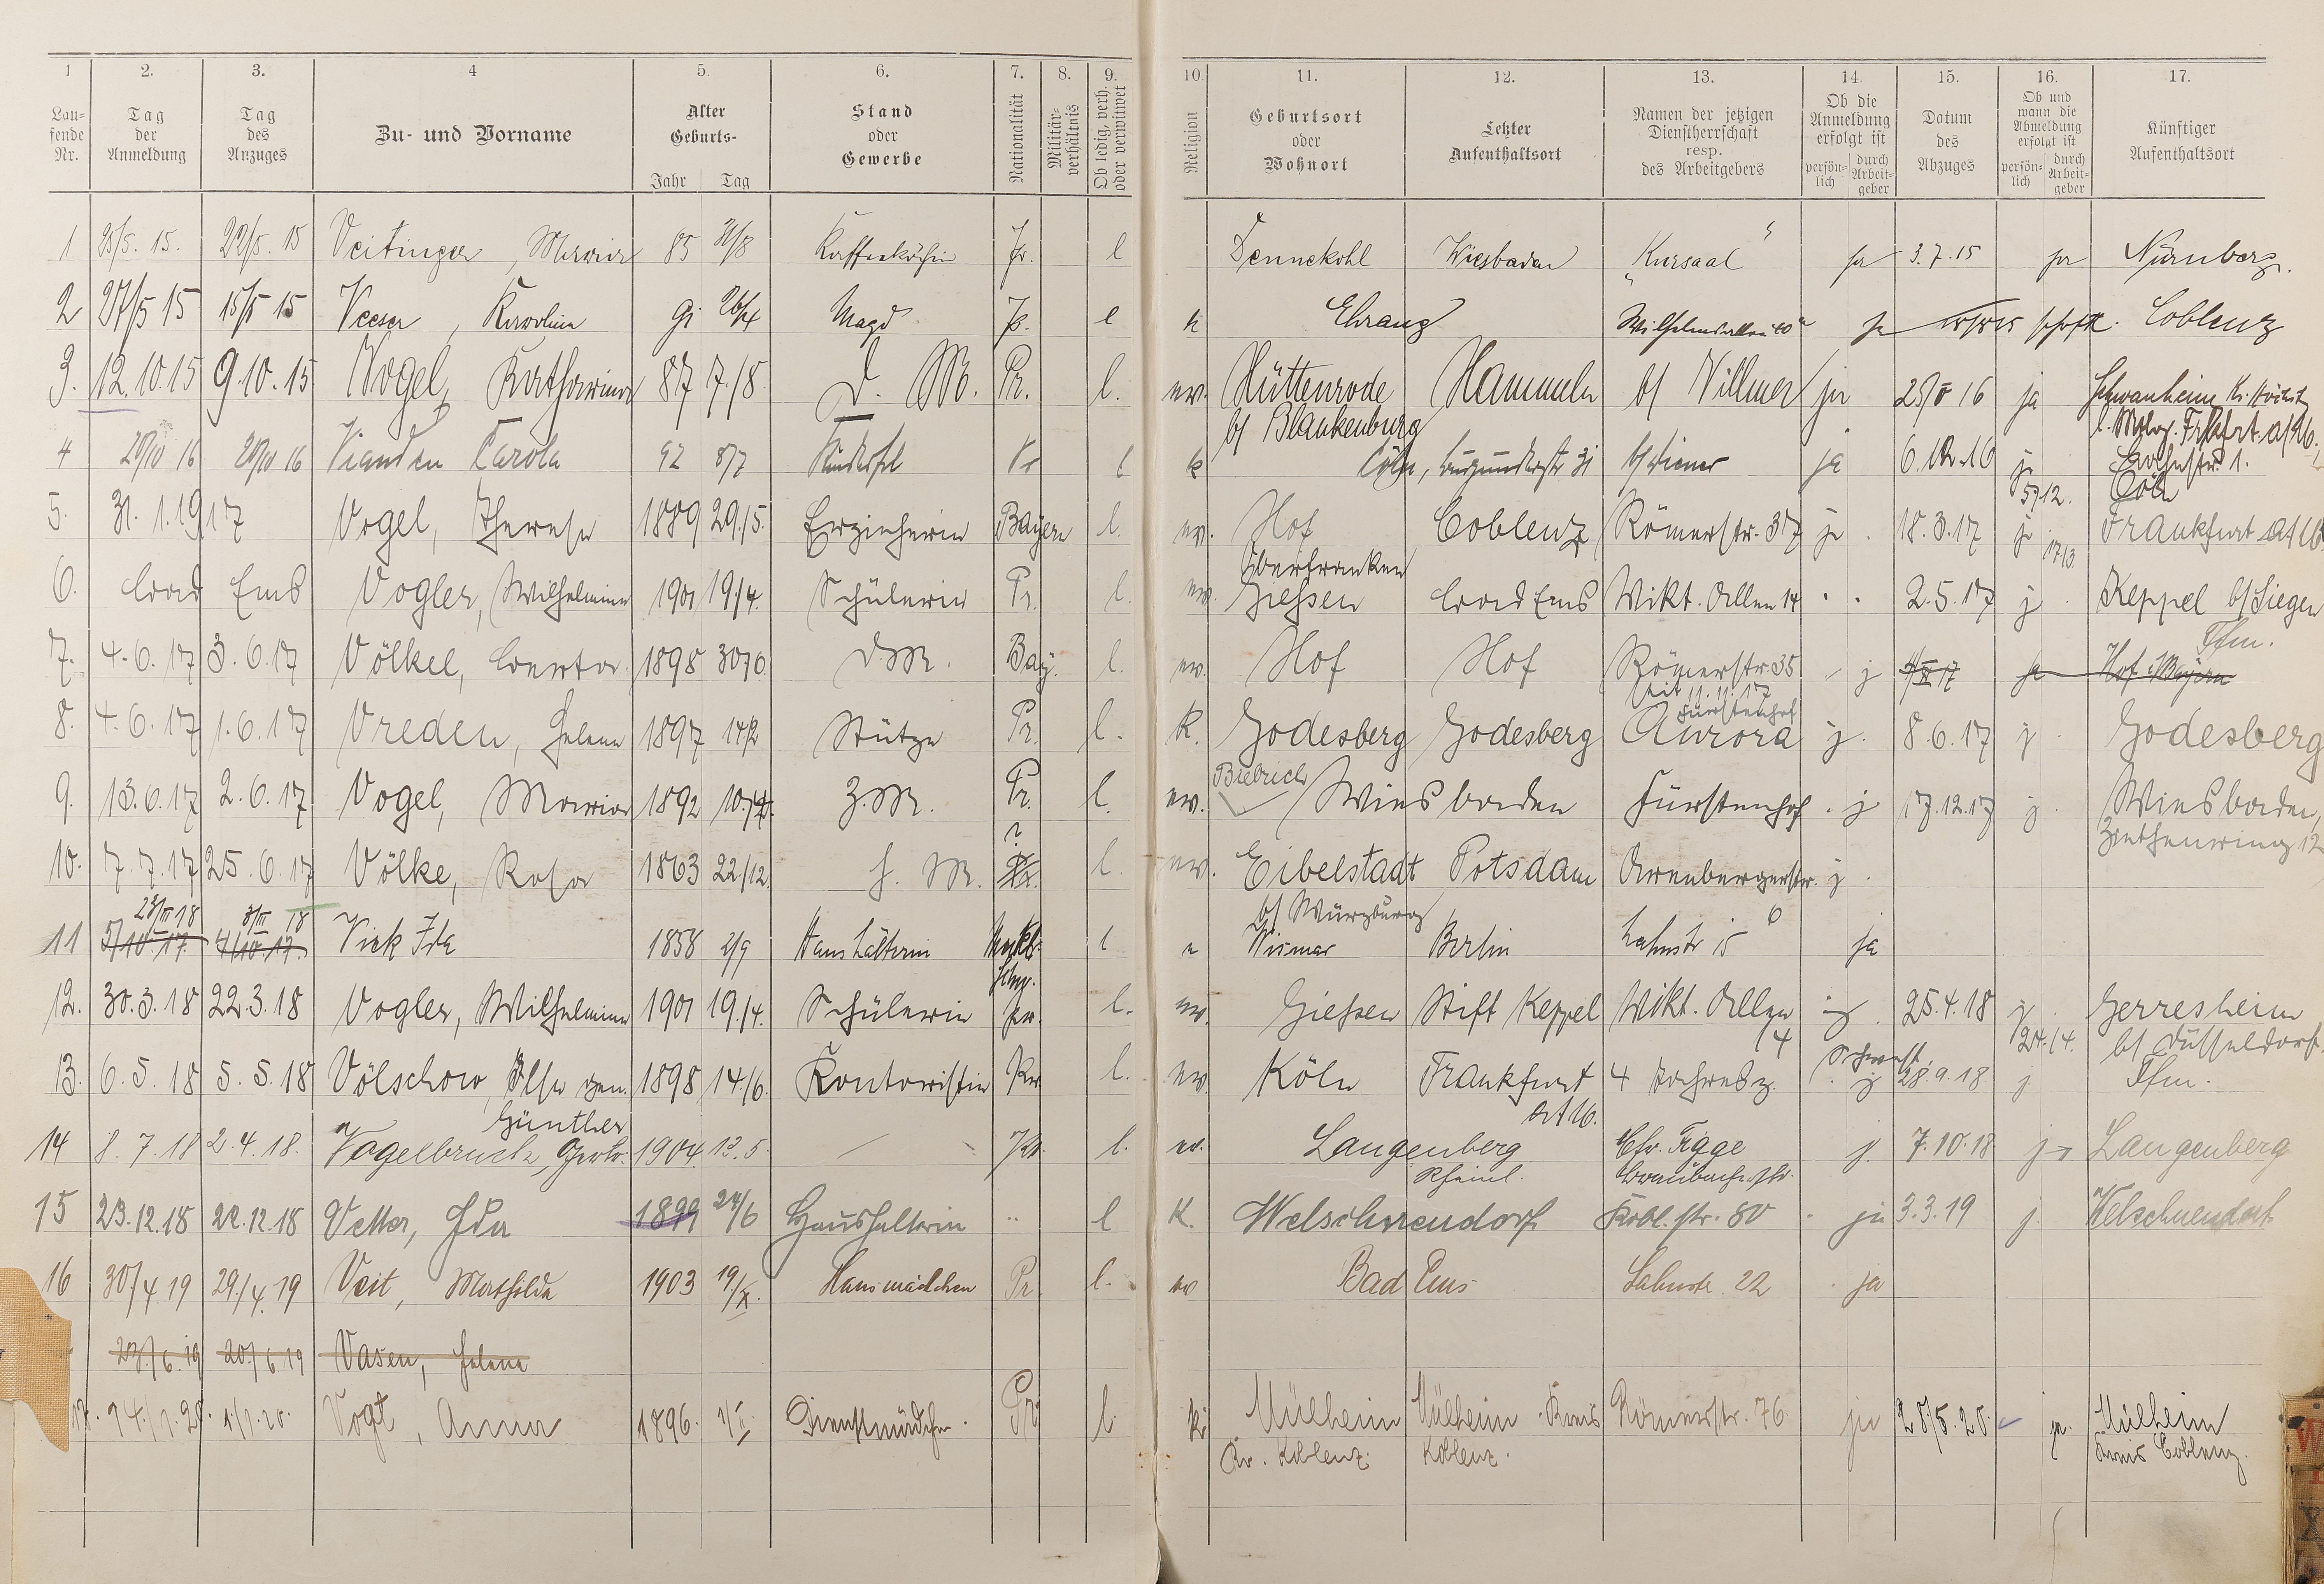 1 2. 3. 4 5. 6. 7. 8. 9. 10. 11. 12. 13. 14. 15. 16. 17.
Lau-fende Nr. Tag der Anmeldung Tag des Anzuges Zu- und Vorname Alter Geburts- Jahr Tag Stand oder Gewerbe Nationalität Militär-verhältnis Ob ledig, verh. oder verwitwet Religion Geburtsort oder Wohnort Letzter Aufenthaltsort Namen der jetzigen Dienstherrschaft resp. des Arbeitgebers Ob die Anmeldung erfolgt ist persön-lich durch Arbeit-geber Datum des Abzuges Ob und wann die Abmeldung erfolgt ist persön-lich durch Arbeit-geber Künftiger Aufenthaltsort
1 25/5. 15. 22/5. 15 Veitinger, Maria 85 Kaffeeköchin l Dennekohl Wiesbaden „Kursaal“ ja 3.7.15 ja Nürnberg.
2 27/5 15 15/5 15 Veeser, Karolina 91 26/4 Magd l k Ehrang ja Coblenz
3. 12.10.15 9.10.15 Vogel, Katharina 87 7./8. D. M. Pr. l. ev. Hüttenrode Hammeln b/ Villmer ja 25/5 16 ja Schwanheim Kr. Höchst
b/ Blankenburg
4 Vianden Carola 92 8/7 Kinderfrl Pr l k Cöln, Burgunderstr 31 b/ Wiener ja 6.12.16 j Cöln
5/12.
5. 31. 1.1917 Vogel, Therese 1889 29./5. Erzieherin Bayern l. ev. Hof Coblenz Römerstr. 37 j. 18.3.17 j 17/3. Frankfurt a/M
Oberfranken
6. Bad Ems Vogler, Wilhelmine 1901 19./4. Schülerin Pr. l. ev. Giessen Bad Ems Vikt. Allee 14 2.5.17 j. Keppel b/ Siegen
7. 4.6.17 3.6.17 Völkel, Berta 1898 30/6 D.M. Bay. l. ev. Hof Hof Römerstr. 35 j 17 ja Hof i/Bayern
Ffm.
seit 11.11.17
Fürstenhof
8. 4.6.17 1.6.17 Vreden, Helene 1897 14/2 Stütze Pr. l. K. Godesberg Godesberg Aurora j. 8.6.17 j. Godesberg
9. 13.6.17 2.6.17 Vogel, Maria 1892 Z.M. Pr. l. ev. Biebrich Wiesbaden Fürstenhof j 17.12.17 j. Wiesbaden,
Ziethenring 12
10. 7.7.17 25.6.17 Völke, Rosa 1863 22/12. H. M. ? Pr. l. ev. Eibelstadt Potsdam Arenbergerstr. j.
b/ Würzburg 6
23/III 18 3/III 18
11 5/10.17. 4/10.17. Vick Ida 1858 2/9 Haushälterin Meckl. Schw. l e Wismar Berlin Lahnstr 15 ja
12. 30.3.18 22.3.18 Vogler, Wilhelmine 1901 19./4. Schülerin Pr. l. ev. Giessen Stift Keppel Vikt. Allee 14 j. 25.4.18 j. 24./4. Gerresheim
b/ Düsseldorf.
13. 6.5.18 5.5.18 Völschow, Ilse gen. 1898 14./6. Kontoristin Pr. l. ev. Köln Frankfurt 4 j 28.9.18 j Ffm.
Günther a/M.
14 8.7.18 2.4.18. Vogelbruch, Gertr. 1904 13.5. l. ev. Langenberg Rheinl. Ehr. Figge j. 7.10.18 j Langenberg
15 23.12.18 22.12.18 Vetter, Ida 1899 24/6 Haushälterin " l K. Welschneudorf Kobl. str. 80 ja 3.3.19 j. Welschneudorf
16 30/4.19 29./4.19 Veit, Mathilde 1903 19/X. Hausmädchen Pr. l. ev Bad Ems Lahnstr. 22 ja
23./6.19 20./6 19 Vasen, Helene
17. 14./1.20. 1./1.20. Vogt, Anna 1896. Dienstmädchen. Pr. l. k. Mülheim Mülheim Kreis Römerstr. 76 ja 20/5.20. ja. Mülheim
Kr. Koblenz. Koblenz. Kreis Coblenz.